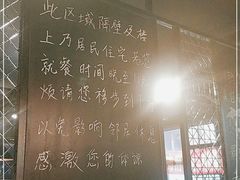 此区域隔壁及楼
上乃居民住宅若您
就餐时间晚至
烦请您移步到
以免影响邻居休息
感激您的体谅